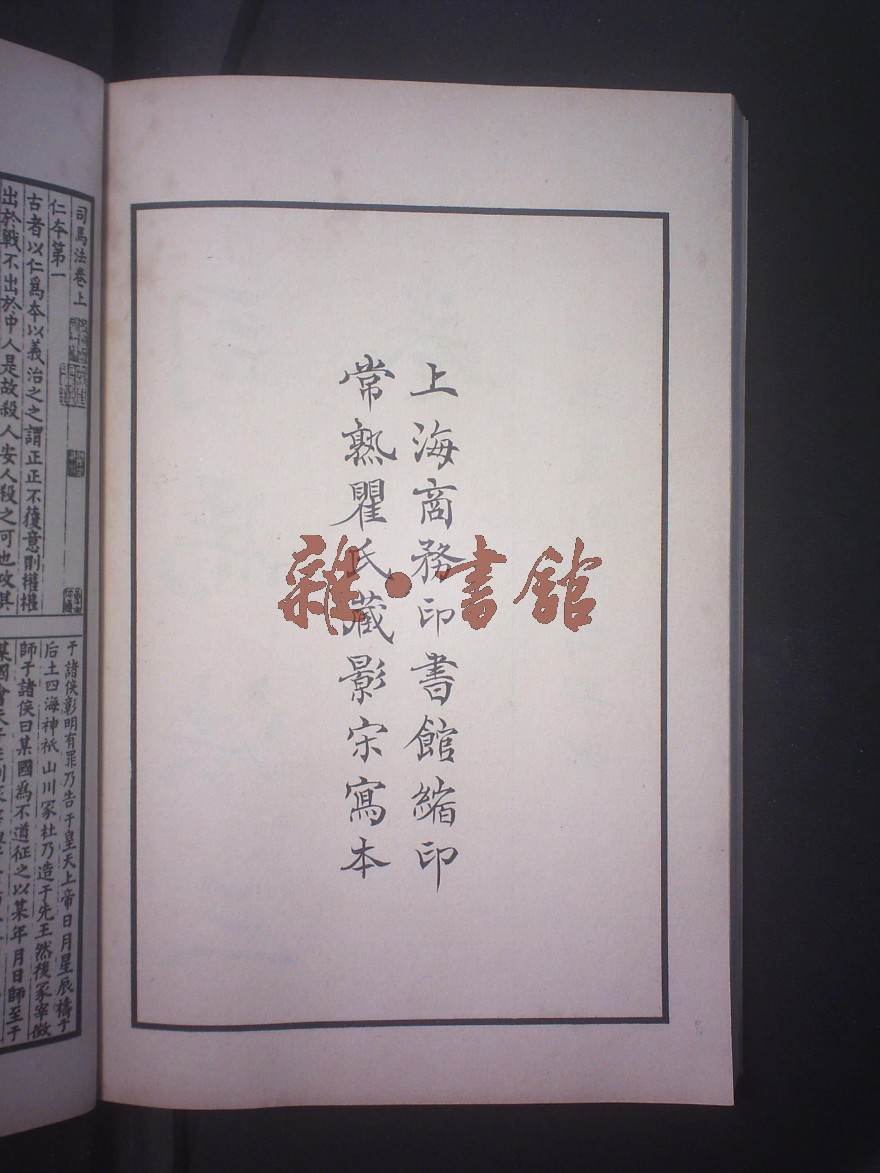 上海商務印書館縮印
常熟瞿氏藏影宋寫本
雜·書館
司馬法卷上
仁夲第一
古者以仁爲夲以義治之之謂正正不獲意則權權
出於戰不出於中人是故殺人安人殺之可也攻其
于諸侯彰明有罪乃告于皇天上帝日月星辰禱于
后土四海神祇山川冢社乃造于先王然後冢宰徵
師于諸侯曰某國爲不道征之以某年月日師至于